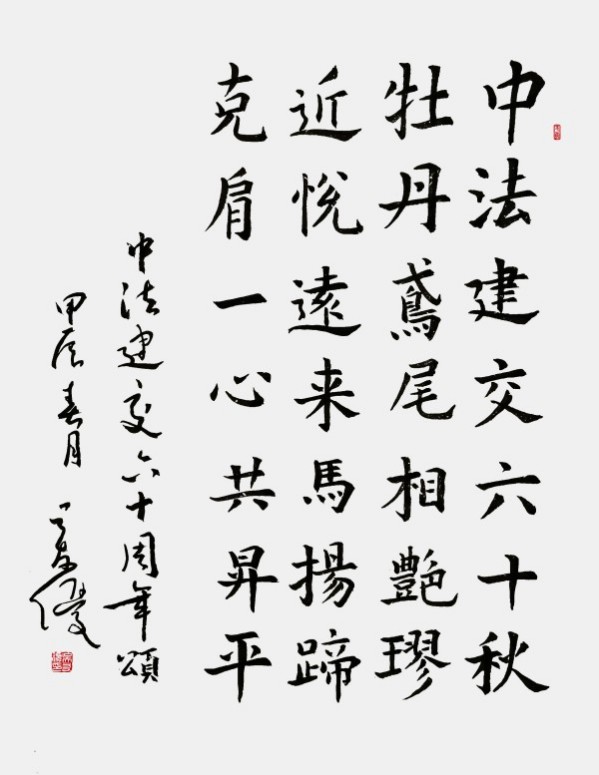 中法建交六十秋
牡丹鳶尾相艷璆
近悦遠来馬揚蹄
克肩一心共昇平
中法建交六十周年頌
甲辰春月